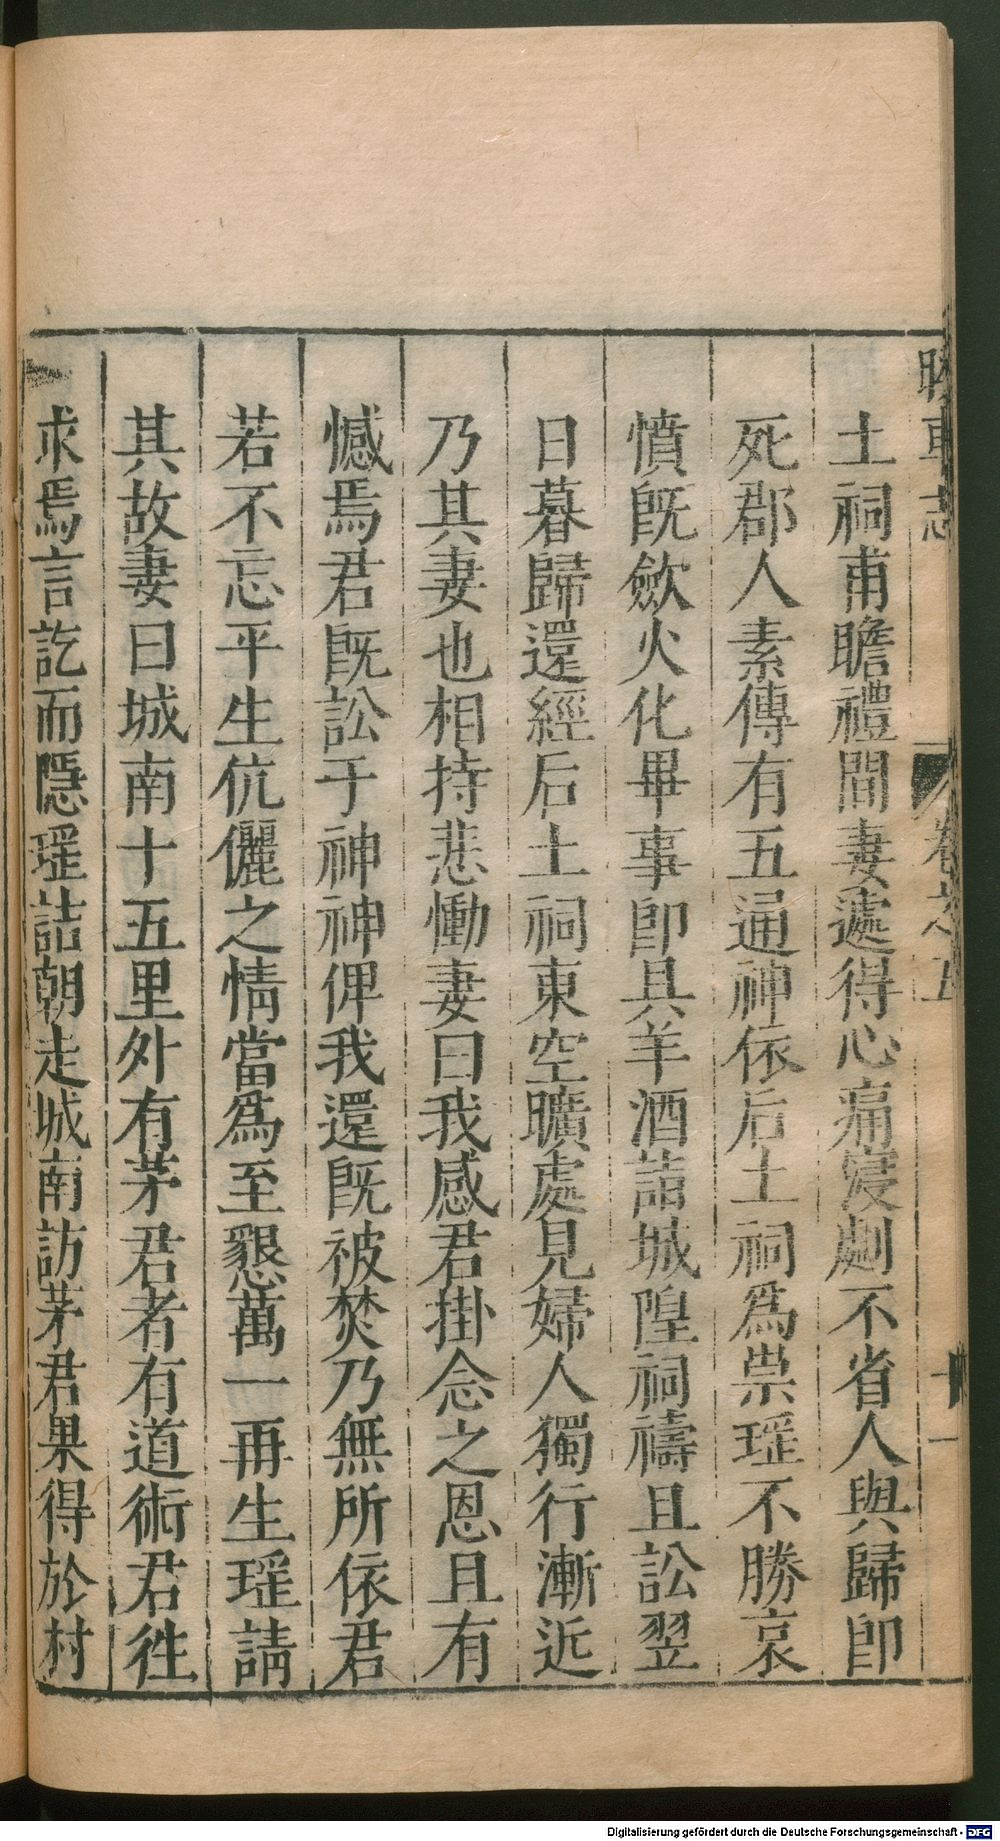 睽車志
卷之五
十一
土祠甫瞻禮間妻遽得心痛寖劇不省人與歸即
死郡人素傳有五通神依后土祠爲祟瑶不勝哀
憤既斂火化畢事卽具羊酒詣城隍祠禱且訟翌
日暮歸還經后土祠東空曠處見婦人獨行漸近
乃其妻也相持悲慟妻曰我感君掛念之恩且有
憾焉君既訟于神神俾我還既被焚乃無所依君
若不忘平生伉儷之情當爲至懇萬一再生瑶請
其故妻曰城南十五里外有茅君者有道術君徃
求焉言訖而隱瑶詰朝走城南訪茅君果得於村
Digitalisierung gefördert durch die Deutsche Forschungsgemeinschaft - DFG